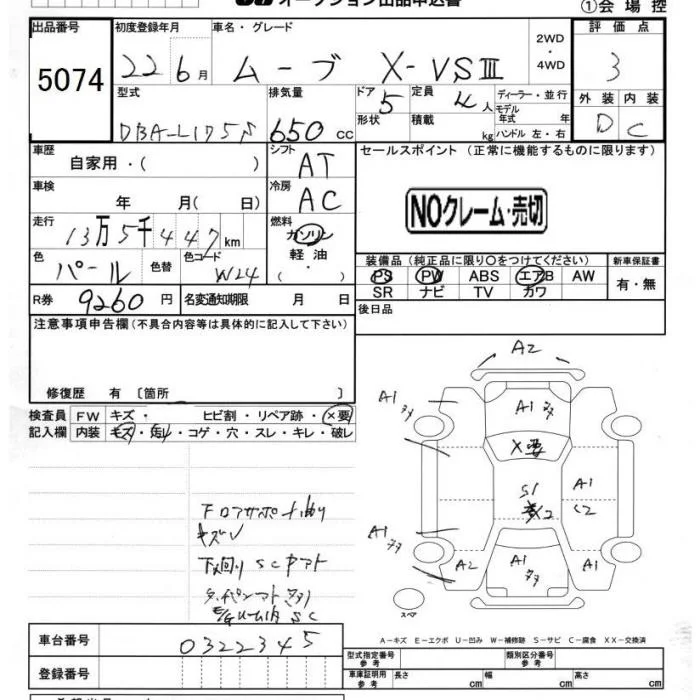 オークション出品申込書
①会場控
出品番号 初度登録年月 車名・グレード 2WD ・ 4WD 評価点
5074 22 6月 ムーブ X-VSⅢ 3
型式 排気量 ドア 5 定員 4人 ディーラー・並行 外装 内装
モデル年式 年
DBA-L175S 650cc 形状 積載 kg ハンドル 左・右 D C
車歴 自家用・( ) シフト AT セールスポイント (正常に機能するものに限ります)
車検 年 月( 日) 冷房 AC
NOクレーム・売切
走行 13万5千447km 燃料 ガソリン
軽油
・( )
色 パール 色替 色コード W24
装備品(純正品に限り○をつけてください) 新車保証書
PS PW ABS エアB AW 有・無
SR ナビ TV カワ
R券 9260円 名変通知期限 月 日
後日品
注意事項申告欄(不具合内容等は具体的に記入して下さい)
修復歴 有 〔箇所 〕
検査員 FW キズ・ ヒビ割・リペア跡・×要
記入欄 内装 キズ・汚れ・コゲ・穴・スレ・キレ・破レ
A2
A1
A1
X要
S1
A1
C2
A1
A2
A1
A1
キズ
下回り SC
SC
スペア
A-キズ E-エクボ U-凹み W-補修跡 S-サビ C-腐食 XX-交換済
車台番号 0322345
登録番号
型式指定番号 参考 類別区分番号 参考
車庫証明用 参考 長さ cm 幅 cm 高さ cm